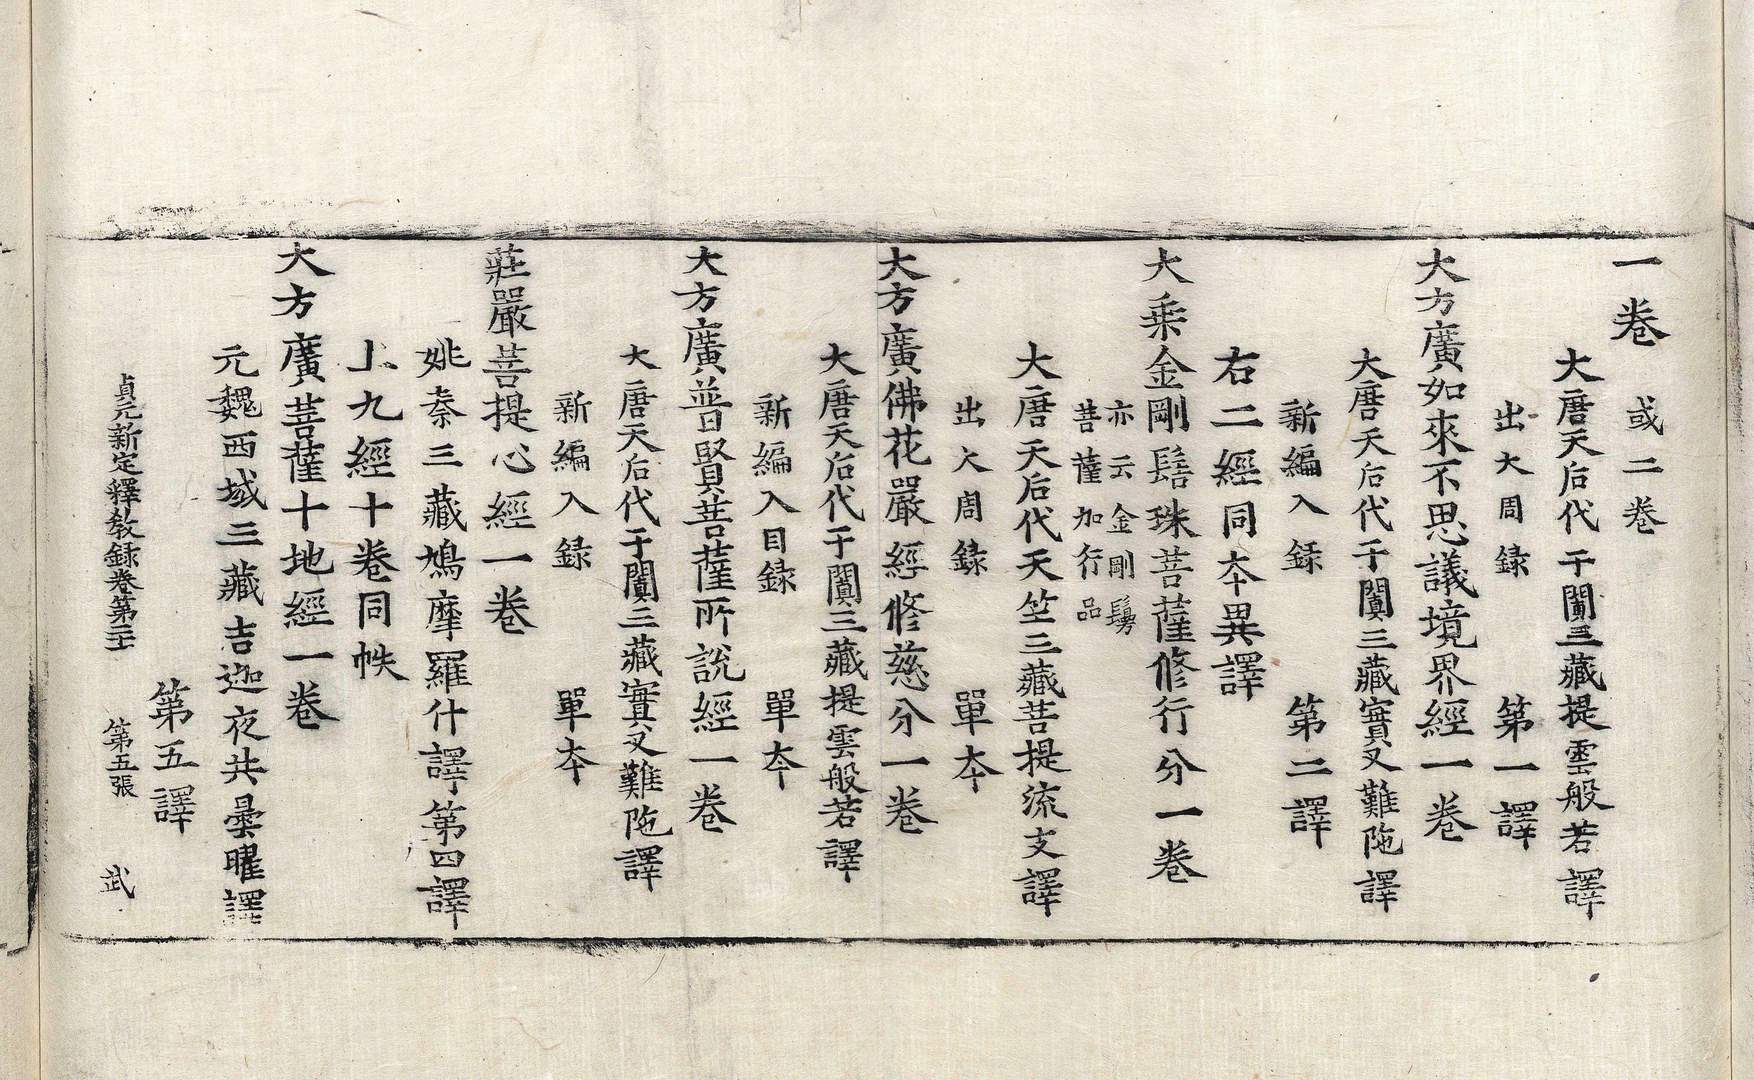 一卷 或二卷
大唐天后代于闐三藏提雲般若譯
出大周録 第一譯
大方廣如來不思議境界經一卷
大唐天后代于闐三藏實叉難陁譯
新編入録 第二譯
右二經同夲異譯
大乗金剛髻珠菩薩修行分一卷
亦云金剛鬘
菩薩加行品
大唐天后代天竺三藏菩提流支譯
出大周録 單夲
大方廣佛花嚴經修慈分一卷
大唐天后代于闐三藏提雲般若譯
新編入目録 單夲
大方廣普賢菩薩所説經一卷
大唐天后代于闐三藏實叉難陁譯
新編入録 單夲
莊嚴菩提心經一卷
姚秦三藏鳩摩羅什譯第四譯
上九經十卷同帙
大方廣菩薩十地經一卷
元魏西域三藏吉迦夜共曇曜譯
第五譯
貞元新定釋教録卷第二十 第五張 武